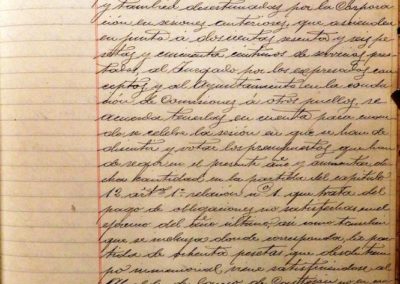 y tambien desestimadas por la Corpora-
ción en sesiones anteriores, que ascienden
en junto a doscientas sesenta y seis pe-
setas y cincuenta centimos de servicios pres-
tados al Juzgado por los expresados con-
ceptos y al Ayuntamiento en la condu-
ción de Comisiones á otros pueblos, se
acuerda tenerlas en cuenta para cuan-
do se celebre la sesión en que se han de
discutir y votar los presupuestos que han
de regir en el presente año y aumentar di-
cha cantidad en la partida del capítulo
12 artº 1º relación nº 1 que trata del
pago de obligaciones no satisfechas en el
ejercicio del año último, así como tambien
que se incluya donde corresponda la par-
tida de setenta pesetas que desde tiem-
po inmemorial viene satisfaciendose al
de